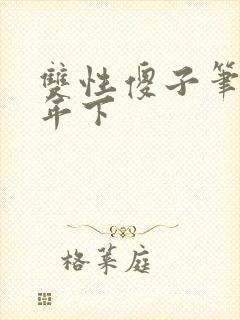 雙性傻子筆
年下
格萊庭